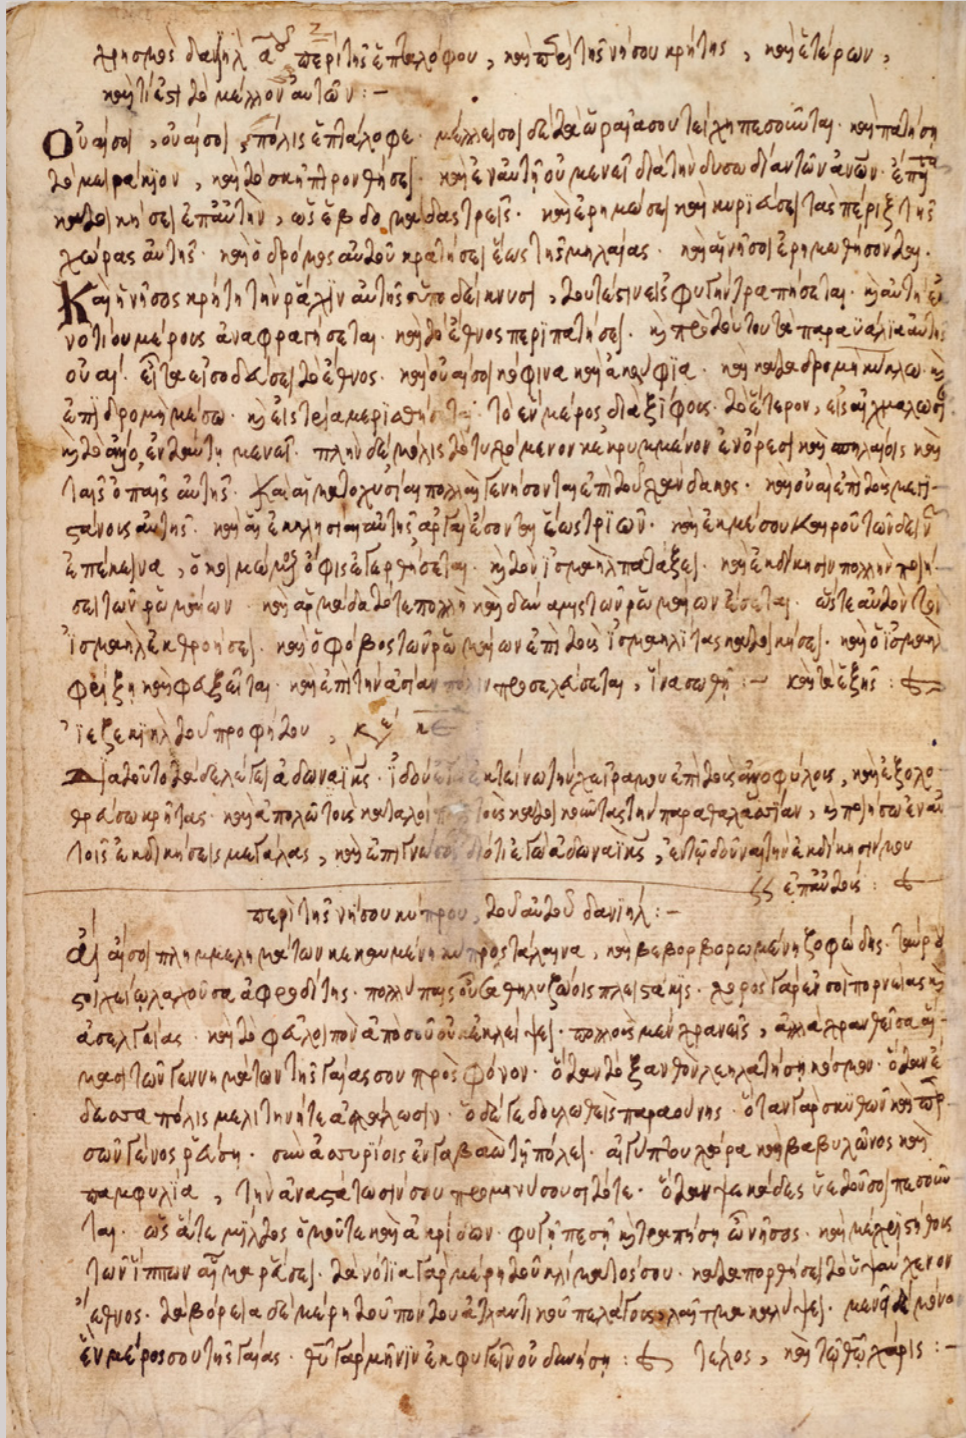 χρησμὸς δανιὴλ α͞ου περὶ τῆς ἑπταλόφου, καὶ περὶ τῆς νήσου κρήτης, καὶ ἑτέρων,
καὶ τί ἐστι τὸ μέλλον αὐτῶν:-
Οὐαί σοι, οὐαί σοι, πόλις ἑπτάλοφε. μέλλει σοι δὲ τὰ ὡραῖά σου τείχη πεσοῦνται. καὶ πατήσῃ
τὸ μειράκιον, καὶ τὸ σκῆπτρον θήσει. καὶ ἐν αὐτῇ οὐ μενεῖ διὰ τὴν δυσωδίαν τῶν ἀνῶν.
κατοικήσει ἐπ' αὐτὴν, ὡς ἑβδομάδας τρεῖς. καὶ ἐρημώσει καὶ κυριεύσει τὰς πέριξ τῆς
χώρας αὐτῆς. καὶ ὁ δρόμος αὐτοῦ κρατήσει ἕως τῆς μηλαίας. καὶ αἱ νῆσοι ἐρημωθήσονται.
Καὶ ἡ νῆσος κρήτη τὴν ῥάχιν αὐτῆς ὑποδείκνυσι, τουτέστιν εἰς φυγὴν τραπήσεται.
νοτίου μέρους ἀναφραγήσεται. καὶ τὸ ἔθνος περιπατήσει. πρὸ τούτου τὰ παραυάλια αὐτῆς
οὐαί. εἶτα εἰσοδεύσει τὸ ἔθνος. καὶ οὐαί σοι κόφινα καὶ ἀκρυφία. καὶ καταδρομὴ κύκλω
ἐπιδρομὴ μέσω. εἰς τρία μερισθήσεται. τὸ ἓν μέρος διὰ ξίφους. τὸ ἕτερον, εἰς αἰχμαλωσί
ἐν ταύτῃ μενεῖ. πλὴν δὲ μόλις τοῦτο μένον κεκρυμμένον ἐν ὄρεσι καὶ σπηλαίοις καὶ
ταῖς ὀπαῖς αὐτῆς. Καὶ αἱματοχυσίαι πολλαὶ γενήσονται ἐπὶ τοῦ χάνδακος. καὶ οὐαὶ ἐπὶ τοὺς μεγι-
στάνους αὐτῆς. καὶ αἱ ἐκκλησίαι αὐτῆς ἀργαὶ ἔσονται ἕως τριῶν. καὶ ἐκ μέσου καιροῦ τῶν δεινῶν
ἐπέκεινα, ὁ κοιμώμενος ὄφις ἐγερθήσεται. τὸν ἰσμαὴλ πατάξει. καὶ ἐκδίκησιν πολλὴν ποιή-
σει τῶν ῥωμαίων. καὶ ἁρμάδα τότε πολλὴ καὶ δύναμις τῶν ῥωμαίων ἔσεται. ὥστε αὐτὸν τὸν
ἰσμαὴλ ἐκθροήσει. καὶ ὁ φόβος τῶν ῥωμαίων ἐπὶ τοὺς ἰσμαηλίτας κατοικήσει. καὶ ὁ ἰσμαὴλ
φρίξῃ καὶ φύξεται. καὶ ἐπὶ τὴν ἀσίαν πάλιν προσελεύσεται, ἵνα σωθῇ:- καὶ τὰ ἑξῆς:
Ἰεζεκιὴλ τοῦ προφήτου, κε΄ κε
Διὰ τοῦτο τάδε λέγει ἀδωναῒ κς. ἰδοὺ ἐγὼ ἐκτείνω τὴν χεῖρά μου ἐπὶ τοὺς ἀλλοφύλους, καὶ ἐξολο-
θρεύσω κρῆτας. καὶ ἀπολῶ τοὺς καταλοίπους τοὺς κατοικοῦντας τὴν παραθαλασσίαν, καὶ ποιήσω ἐν αὐ
τοῖς ἐκδικήσεις μεγάλας, καὶ ἐπιγνώσονται διότι ἐγὼ ἀδωναῒ κς, ἐν τῷ δοῦναι τὴν ἐκδίκησίν μου
ἐπ' αὐτούς:
περὶ τῆς νήσου κύπρου, τοῦ αὐτοῦ δανιήλ:-
Αἴ αἴ σοι πλημμελημάτων κεκαυμένη κύπρος τάλαινα, καὶ βεβορβορωμένη ζοφώδης.
στοιχείῳ λαχοῦσα ἀφροδίτης. πολλὺ παῖς οὖσα θηλυζώοις πλειστάκις. χορὸς γάρ ἐν σοὶ πορνείας
ἀσελγείας. καὶ τὸ φαῦλοιπὸν ἀπὸ σοῦ οὐκ ἐκλείψει. πολλοὺς μὲν χρανεῖς, ἀλλὰ χρανθεῖσα αἵ-
μασι τῶν γεννημάτων τῆς γαίας σου πρὸς φόνον. ὅταν τὸ ξανθὸν λεηλατήσῃ κόσμον. ὅταν ἔ
δεσσα πόλις μελιτηνή τε ἀφάλωσιν. ὁ δέ γε δουλωθεὶς παραούνης. ὅταν γὰρ σκυθῶν καὶ περ-
σῶν γένος ῥεύσῃ. σὺν ἀσσυρίοις ἐν γαβαὼ τῇ πόλει. αἰγύπτου χώρα καὶ βαβυλῶνος καὶ
παμφυλία, τὴν ἀναστάτωσίν σου προμηνύσουσι τότε. ὅταν ψεκάδες ὑετοῦ σοι πεσοῦν
ται. ὡς ἅτε μίλτος ὁμοῦ τε καὶ ἀκρίδων. φυγῇ πέσῃ καὶ τραπήσῃ ὦ νῆσος. καὶ μέχρι στήθους
τῶν ἵππων αἷμα ῥεύσει. τὰ νότια γὰρ μέρη τοῦ κλίματός σου. καταπορθήσει τὸ ὑψαύχενον
ἔθνος. τὰ βόρεια δὲ μέρη τοῦ πόντου ἀτλαντικοῦ πελάγους, λαῖτμα καλύψει. μενεῖ δὲ μόνον
ἓν μέρος σου τῆς γαίας. θυ γὰρ μῆνιν ἐκφυγεῖν οὐ δυνήσῃ: τέλος, καὶ τῷ θῷ χάρις:-